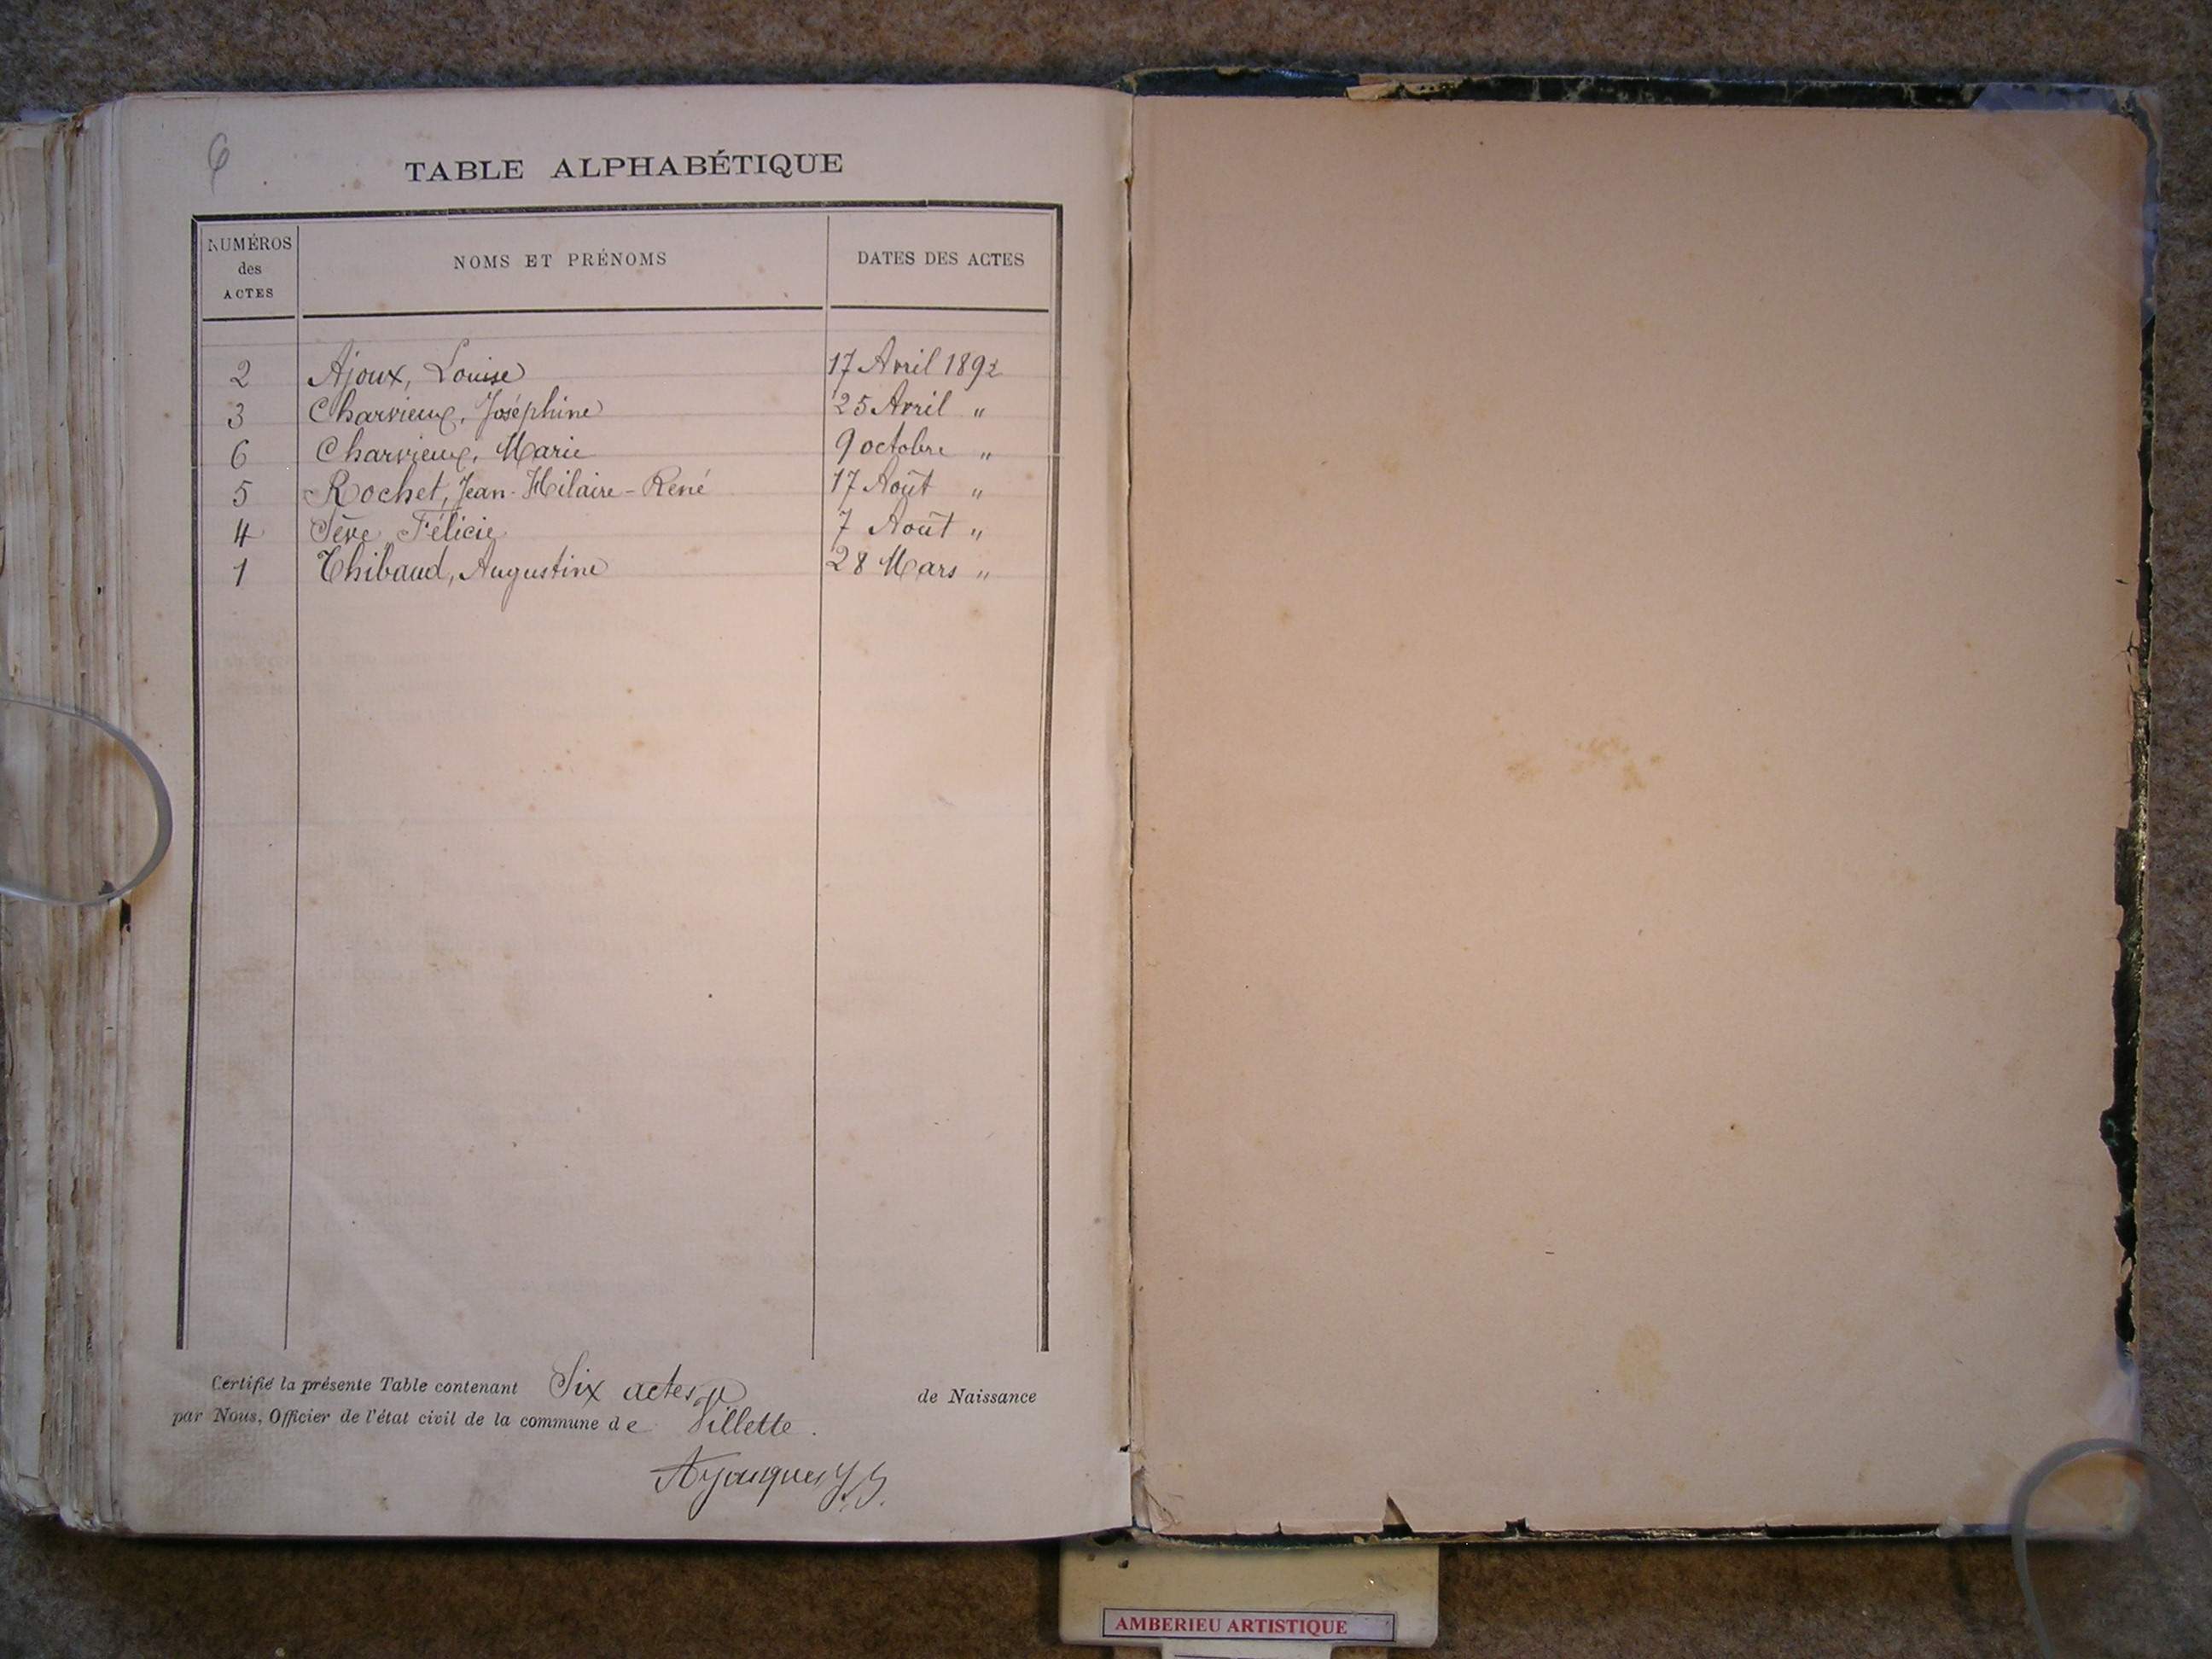 6
TABLE ALPHABÉTIQUE
NUMÉROS des ACTES
NOMS ET PRÉNOMS
DATES DES ACTES
2 Ajoux, Louise 17 Avril 1892
3 Charvieux, Joséphine 25 Avril "
6 Charvieux, Marie 9 octobre "
5 Rochet, Jean-Hilaire-René 17 Août "
4 Sève, Félicie 7 Août "
1 Thibaud, Augustine 28 Mars "
Certifié la présente Table contenant Six actes de Naissance
par Nous, Officier de l'état civil de la commune de Villette.
AMBERIEU ARTISTIQUE